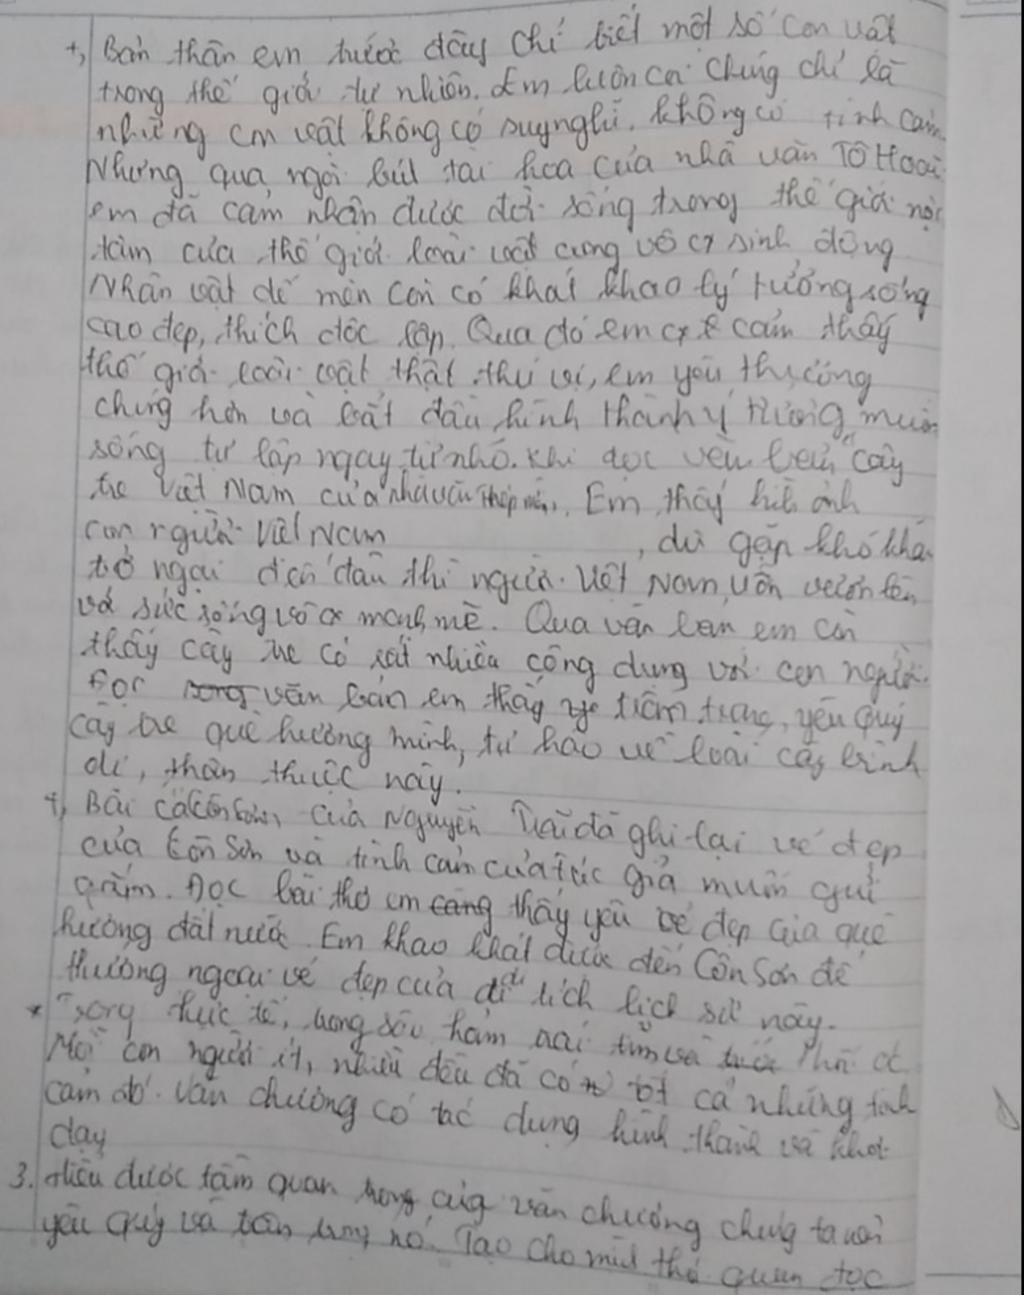 +, Bản thân em trước đây chỉ biết một số con vật
trong thế giới tự nhiên. Em luôn coi chúng chỉ là
những con vật không có suy nghĩ, không có tình cảm
Nhưng qua ngòi bút tài hoa của nhà văn Tô Hoài
em đã cảm nhận được đời sống trong thế giới nội
tâm của thế giới loài vật cũng vô cг sinh động
Nhân vật dế mèn còn có khát khao lý tưởng sống
cao đẹp, thích độc lập. Qua đó em cảm thấy
thế giới loài vật thật thú vị, em yêu thương
chúng hơn và bắt đầu hình thành ý tưởng muốn
sống tự lập ngay từ nhỏ. Khi đọc văn bản cây
tre Việt Nam của nhà văn Thép mới, Em thấy hình ảnh
con người Việt Nam , dù gặp khó khăn
trở ngại đến đâu thì người Việt Nam vẫn vươn lên
và sức sống vô cг mạnh mẽ. Qua văn bản em còn
thấy cây tre có rất nhiều công dụng với con người.
Đọc văn bản em thấy trân trọng, yêu quý
cây tre quê hương mình, tự hào về loài cây bình
dị, thân thuộc này.
+, Bài ca Côn Sơn của Nguyễn Trãi đã ghi lại vẻ đẹp
của Côn Sơn và tình cảm của tác giả muốn gửi
gắm. Đọc bài thơ em càng thấy yêu vẻ đẹp của quê
hương đất nước. Em khao khát được đến Côn Sơn để
thưởng ngoạn vẻ đẹp của di tích lịch sử này.
* Trong thực tế, lòng
Mọi con người ít, nhiều đều đã có tất cả những tình
cảm đó. Văn chương có tác dụng hình thành và khơi
dạy
3. Hiểu được tầm quan trọng của văn chương chúng ta
yêu quý và trân trọng nó. Tạo cho mình thói quen đọc